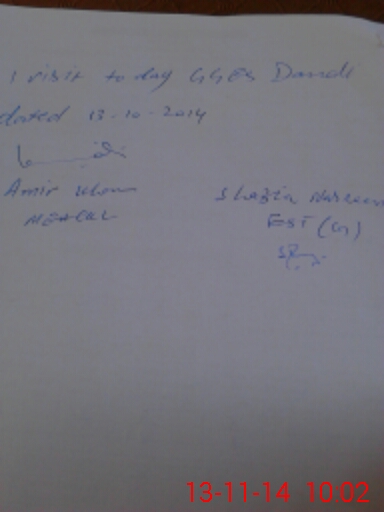 I visit today GGES Dandi
dated 13-10-2014
Amir Khan
Shazia Nasreen
EST (G)
13-11-14 10:02